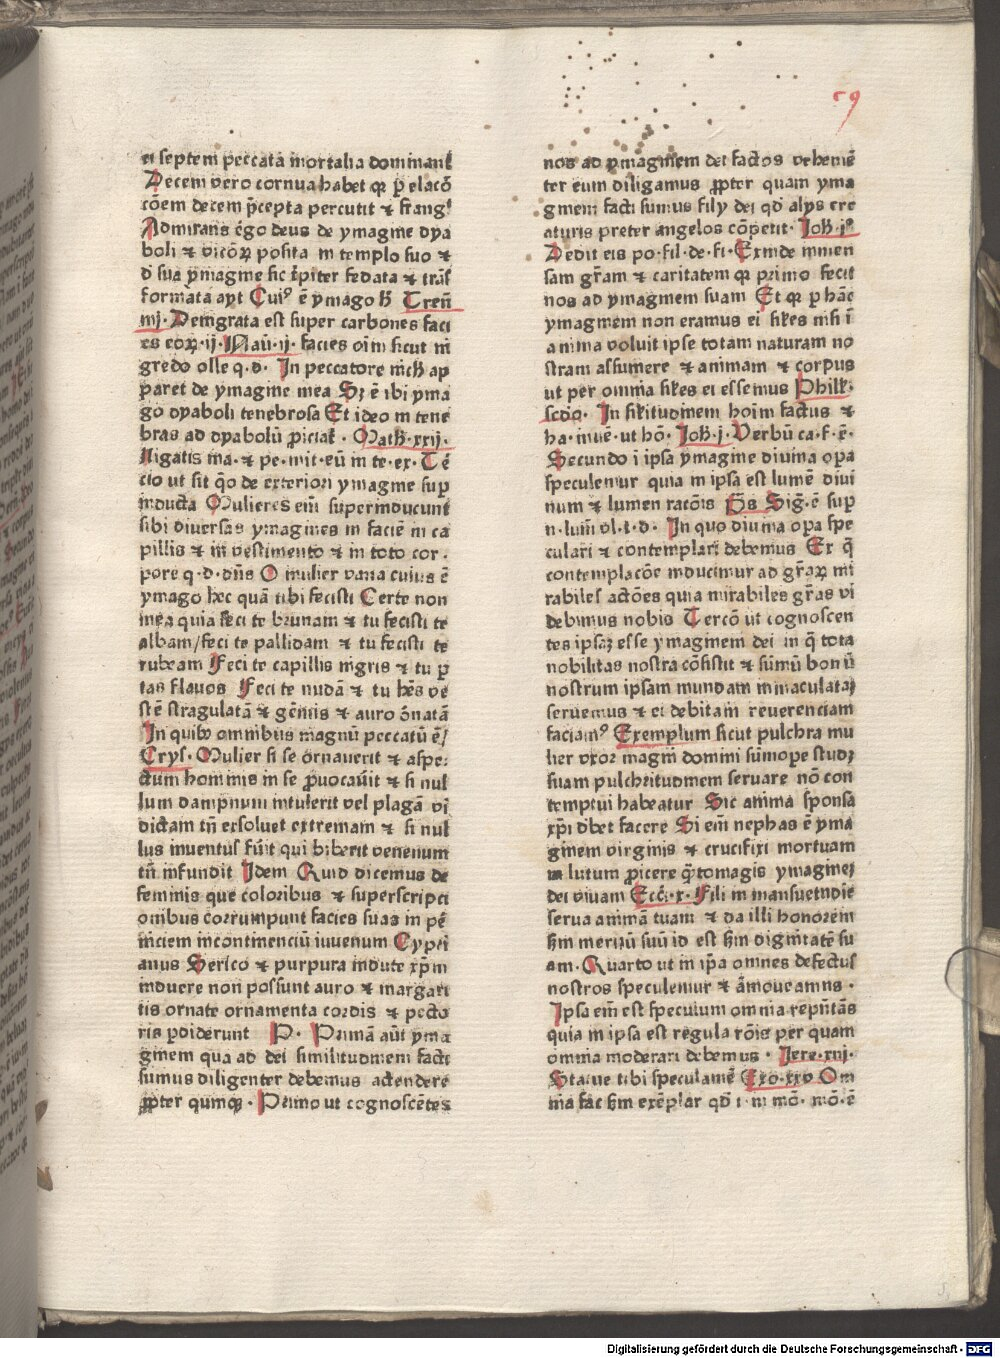 59
ei septem peccata mortalia dominant
Decem vero cornua habet qꝛ ꝑ elacō
cōem decem p̄cepta percutit ⁊ frangꝰ
Admirans ergo deus de ymagine dya
boli ⁊ vicioꝝ posita in templo suo ⁊
ꝙ sua ymagine sic turpiter fedata ⁊ trās
formata ayt Cuiꝰ ē ymago hec Tren̄
iiij. Denigrata est super carbones faci
es eoꝝ. ij. Naū. ij. facies oīm sicut ni
gredo olle q. d. In peccatore nichil ap
paret de ymagine mea Sꝫ ē ibi yma
go dyaboli tenebrosa Et ideo in tene
bras ad dyabolū ꝓiciat. Math. xxij.
Ligatis ma. ⁊ pe. mit. eū in te. ex. Ter
cio ut sit q̄o de exteriori ymagine suꝑ
inducta Mulieres eīm superinducunt
sibi diversas ymagines in faciē in ca
pillis ⁊ in vestimento ⁊ in toto cor.
pore q. d. dn̄s O mulier vana cuius ē
ymago hec quā tibi fecisti Certe non
mea quia feci te brunam ⁊ tu fecisti te
albam/feci te pallidam ⁊ tu fecisti te
rubeam Feci te capillis nigris ⁊ tu ꝑ
tas flavos Feci te nudā ⁊ tu hēs ve
stē stragulatā ⁊ gēmis ⁊ auro ornatā
In quibꝰ omnibus magnū peccatū ē/
Crys. Mulier si se ornaverit ⁊ aspe/
ctum hominis in se ꝓvocaūit ⁊ si nul
lum dampnum intulerit vel plagā vī
dictam tn̄ exsolvet extremam ⁊ si nul
lus inventus fūit qui biberit venenum
tn̄ infundit Idem Quid dicemus de
feminis que coloribus ⁊ superscripti
onibus corrumpunt facies suas in ꝑ
niciem incontinenciū iuvenum Cypri
anus Serico ⁊ purpura indute xp̄m
induere non possunt auro ⁊ margari
tis ornate ornamenta cordis ⁊ pecto
ris ꝑdiderunt P. Primā aūt yma
ginem qua ad dei similitudinem facti
sumus diligenter debemus attendere
ꝓpter quinqꝫ. Primo ut cognoscētes
nos ad ymaginem dei factos vehemē
ter eum diligamus ꝓpter quam yma
ginem facti sumus filij dei qd̄ alijs cre
aturis preter angelos cōpetit. Joh. jº
Dedit eis po. fil. de. fi. Exinde inmen
sam gr̄am ⁊ caritatem qꝛ primo fecit
nos ad ymaginem suam Et qꝛ ꝑ hāc
ymaginem non eramus ei siles nisi ī
anima voluit ipse totam naturam no
stram assumere ⁊ animam ⁊ corpus
ut per omnia siles ei essemus Phili.
scdo. In silitudinem hoīm factus ⁊
ha. inuē. ut hō. Joh. j. Verbū ca. f. ē.
Secundo ī ipsa ymagine divina oꝑa
speculemur quia in ipsa est lumē divi
num ⁊ lumen racōis Ps̄ Sig. ē suꝑ
n. lum̄ vl. t. d. In quo divina oꝑa spe
culari ⁊ contemplari debemus Ex q̄
contemplacōe inducimur ad gr̄aꝝ mi
rabiles actōes quia mirabiles gr̄as vi
debimus nobis Tercō ut cognoscen
tes ipsaꝫ esse ymaginem dei in q̄ tota
nobilitas nostra cōsistit ⁊ sūmū bonū
nostrum ipsam mundam inmaculataꝫ
servemus ⁊ ei debitam reverenciam
faciamꝰ Exemplum sicut pulchra mu
lier vxor magni domini sūmope studꝫ
suam pulchritudinem servare nō con
temptui habeatur Sic anima sponsa
xp̄i dꝫbet facere Si eīm nephas ē yma
ginem virginis ⁊ crucifixi mortuam
in lutum ꝓicere q̄tomagis ymagineꝫ
dei vivam Ecci. x. Fili in mansuetudīe
serva animā tuam ⁊ da illi honorem
sm̄ meritū suū id est sm̄ dignitatē su
am. Quarto ut in ip̄a omnes defectus
nostros speculemur ⁊ amoveamus.
Ipsa eīm est speculum omnia repn̄tās
quia in ipsa est regula rōis per quam
omnia moderari debemus. Jere. xvj.
Statue tibi speculamē Exo. xxv Om
nia fac sm̄ exēplar qd̄ t. in mō. mō. ē
Digitalisierung gefördert durch die Deutsche Forschungsgemeinschaft - DFG